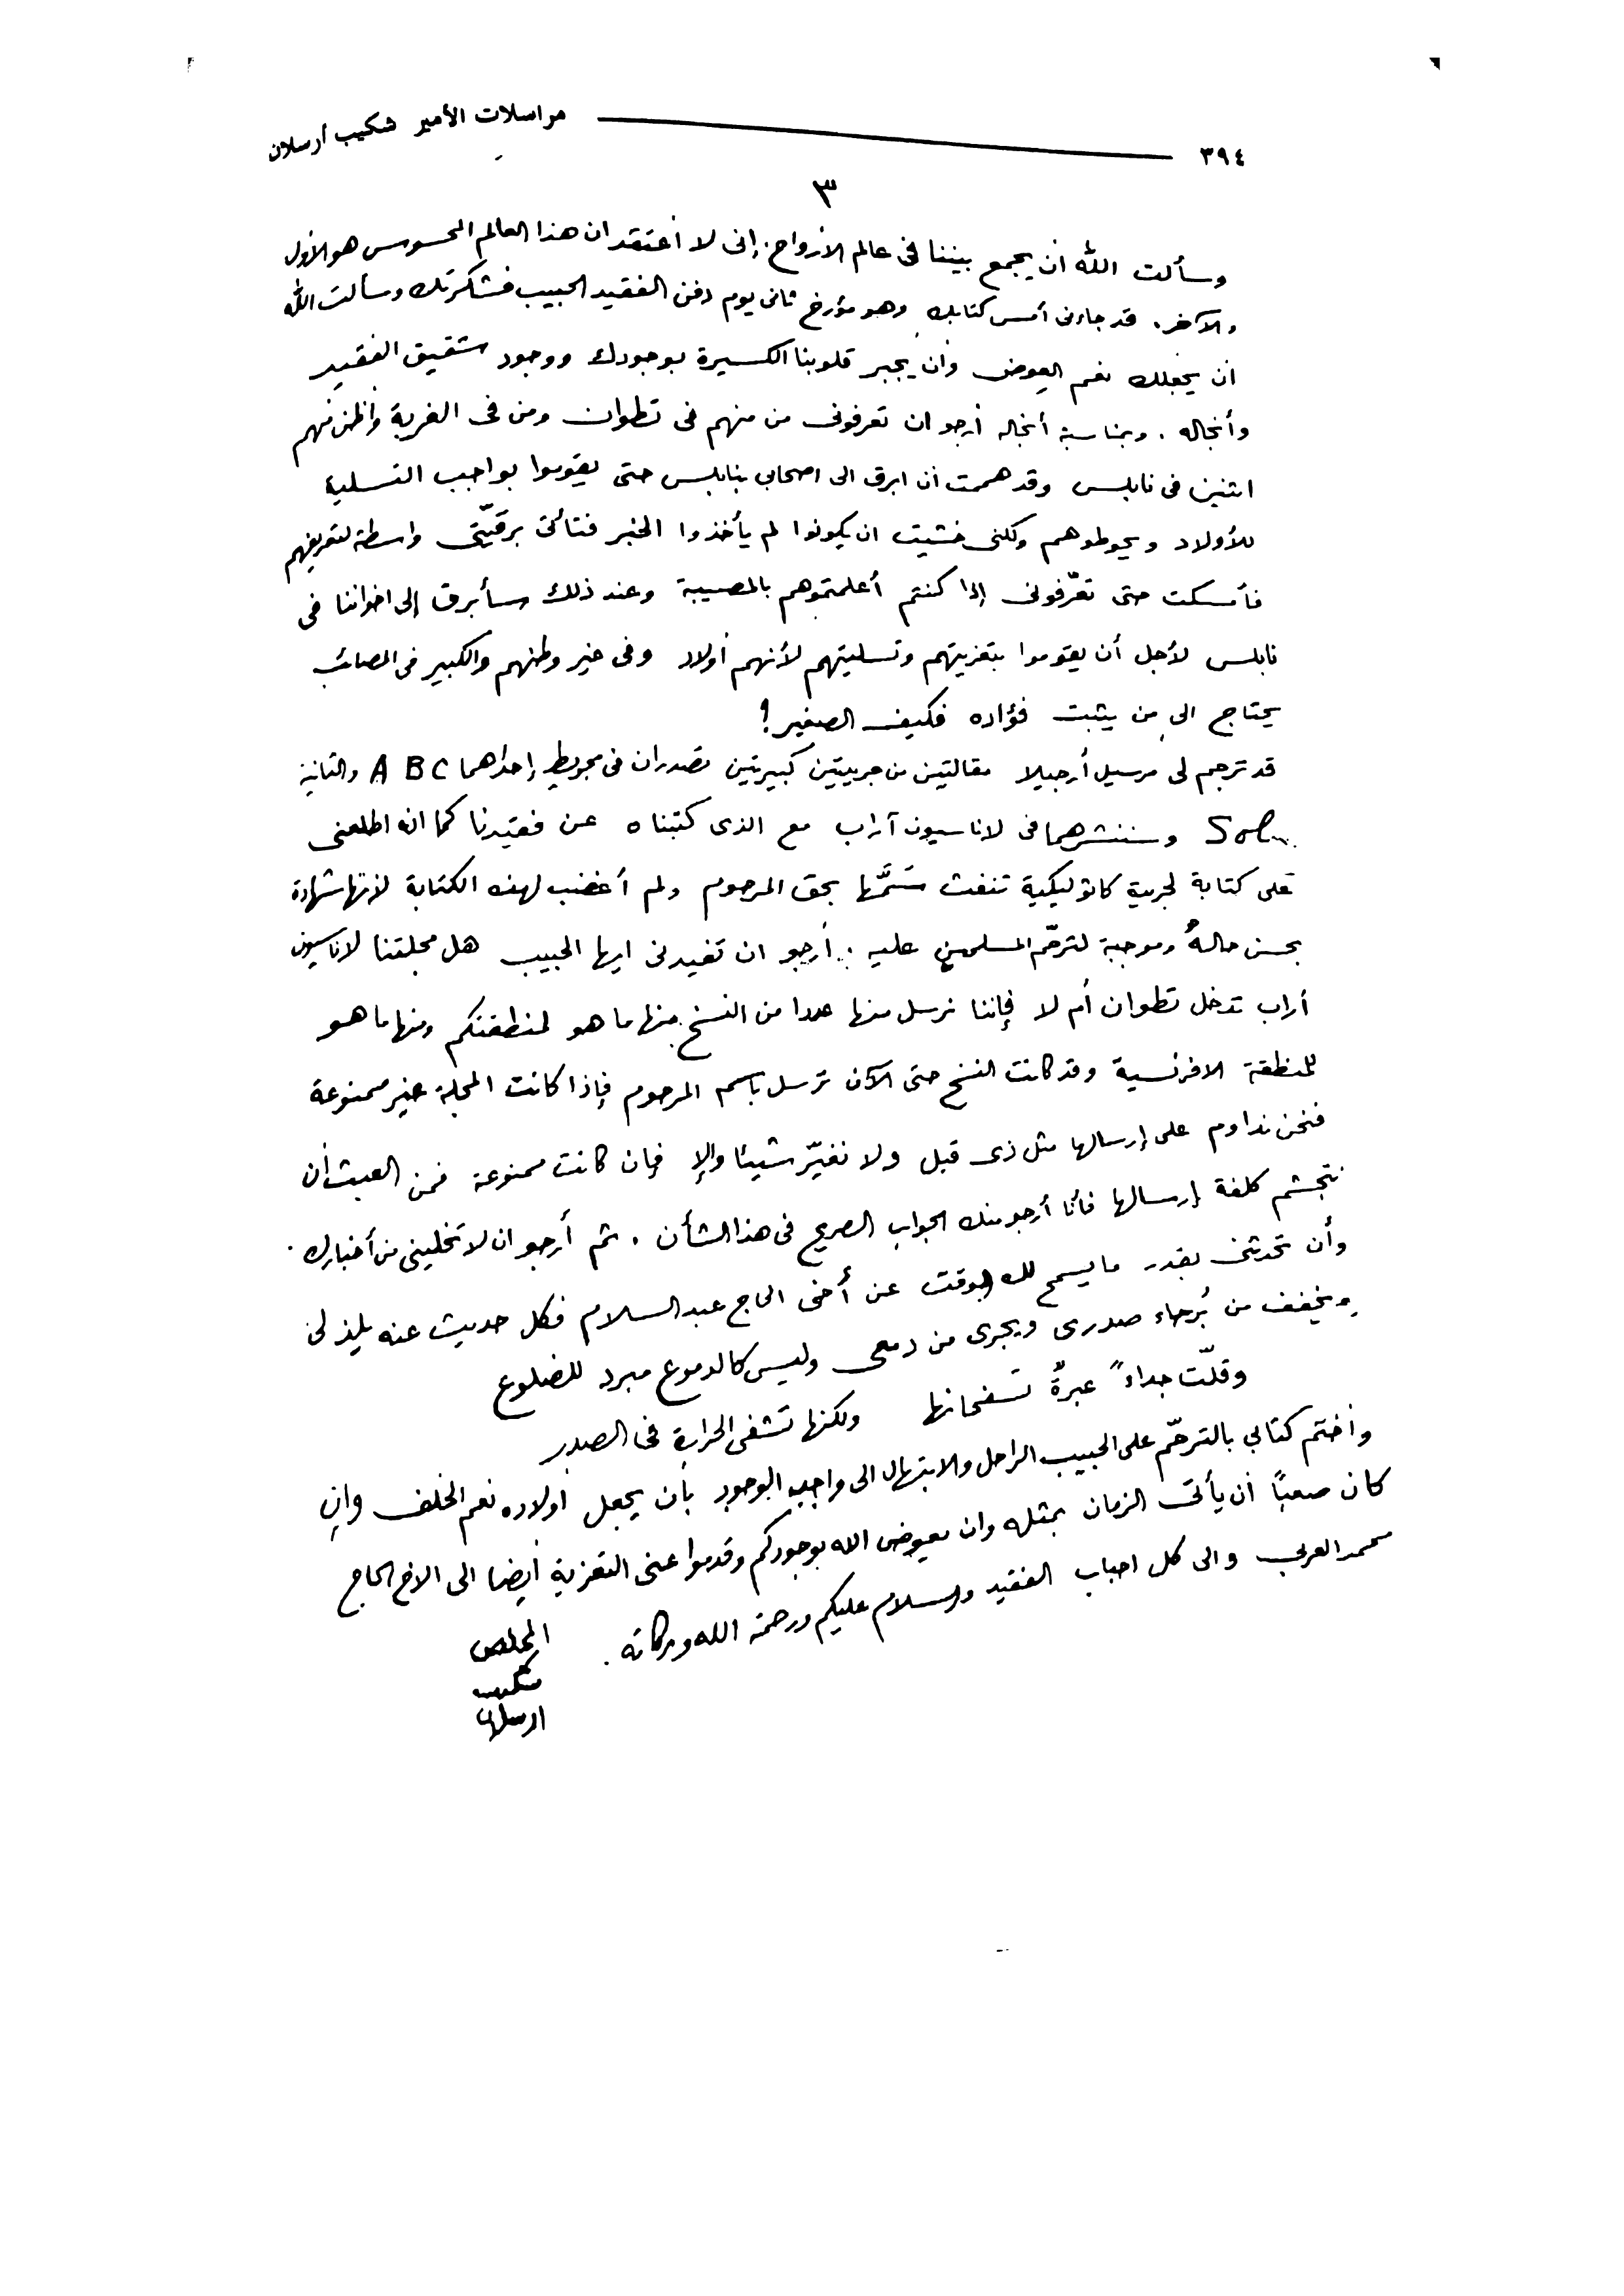 ٣٩٤ مراسلات الأمير شكيب أرسلان
٣
وسألت الله ان يجمع بيننا فى عالم الأرواح. إنى لا أعتقد ان هذا العالم المحسوس هو الأول
والآخر. قد جاءنى أمس كتابك وهو مؤرخ ثانى يوم دفن الفقيد الحبيب فشكرتك وسألت الله
ان يجعلك نعم العوض وأن يجبر قلوبنا الكسيرة بوجودك ووجود شقيق الفقيد
وأنجاله. وبمناسبة أنجاله أرجو ان تعرفونى من منهم فى تطوان ومن فى الغربة وأظن منهم
اثنين فى نابلس وقد هممت أن ابرق الى اصحابى بنابلس حتى يقوموا بواجب التسلية
للأولاد ويحوطوهم ولكنى خشيت ان يكونوا لم يأخذوا الخبر فتأتى برقيّتى واسطة لتعريفهم
فأمسكت حتى تعّرفونى إذا كنتم أعلمتموهم بالمصيبة وعند ذلك سأبرق إلى اخواننا فى
نابلس لأجل أن يقوموا بتعزيتهم وتسليتهم لأنهم أولاد وفى غير وطنهم والكبير فى المصائب
يحتاج الى من يثبت فؤاده فكيف الصغير؟
قد ترجم لى مرسيل أرجيلا مقالتين من جريدتين كبيرتين تصدران فى مجريط إحداهما A B C والثانية
Sol وسننشرهما فى لاناسيون آراب مع الذى كتبناه عن فقيدنا كما انه اطلعنى
على كتابة لجريدة كاثوليكية تنفث سَمَّها بحق المرحوم ولم أغضب لهذه الكتابة لأنها شهادة
بحسن حاله وموجبة لترحّم المسلمين عليه. أرجو ان تفيدنى ايها الحبيب هل مجلتنا لاناسيون
أراب تدخل تطوان أم لا فإننا نرسل منها عددا من النسخ منها ما هو لمنطقتكم ومنها ما هو
للمنطقة الافرنسية وقد كانت النسخ حتى الآن ترسل باسم المرحوم فإذا كانت المجلة غير ممنوعة
فنحن نداوم على إرسالها مثل ذى قبل ولا نغيّر شيئا وإلا فإن كانت ممنوعة فمن العبث أن
نتجشم كلفة إرسالها فأنا أرجو منك الجواب الصريح فى هذا الشأن. ثم أرجو ان لا تخلينى من أخبارك.
وأن تحدثنى بقدر ما يسمح لك الوقت عن أخى الحاج عبد السلام فكل حديث عنه يلذ لى
ويخفف من بُرحاء صدرى ويجرى من دمعى وليس كالدموع مبرد للضلوع
وقلّت جداءً عبرةٌ تسفحانها ولكنها تشفى الحرارة فى الصدر
وأختم كتابى بالترحّم على الحبيب الراحل والابتهال الى واجب الوجود بأن يجعل أولاده نعم الخلف وإن
كان صعبًا أن يأتى الزمان بمثله وان يعوض الله بوجودكم وقدموا عنى التعزية أيضا الى الاخ الحاج
محمد العربى والى كل احباب الفقيد والسلام عليكم ورحمة الله وبركاته.
المخلص
شكيب
ارسلان